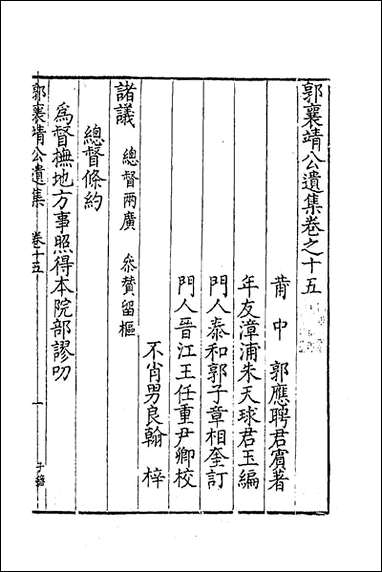 郭襄靖公遺集卷之十五
莆中 郭應聘君賓著
年友漳浦朱天球君玉編
門人泰和郭子章相奎訂
門人晉江王任重尹卿校
不肖男良翰 梓
諸議 總督兩廣 叅賛留樞
總督條約
爲督撫地方事照得本院部謬叨
郭襄靖公遺集 卷十五 一